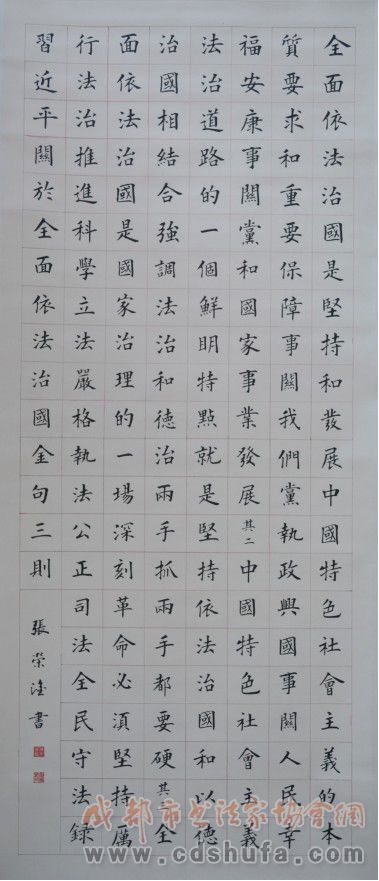 全面依法治國是堅持和發展中國特色社會主義的本
質要求和重要保障事關我們黨執政興國事關人民幸
福安康事關黨和國家事業發展其二中國特色社會主義
法治道路的一個鮮明特點就是堅持依法治國和以德
治國相結合強調法治和德治兩手抓兩手都要硬其三全
面依法治國是國家治理的一場深刻革命必須堅持厲
行法治推進科學立法嚴格執法公正司法全民守法録
習近平關於全面依法治國金句三則 張榮書
成都市书法家協會網
www.cdshufa.com